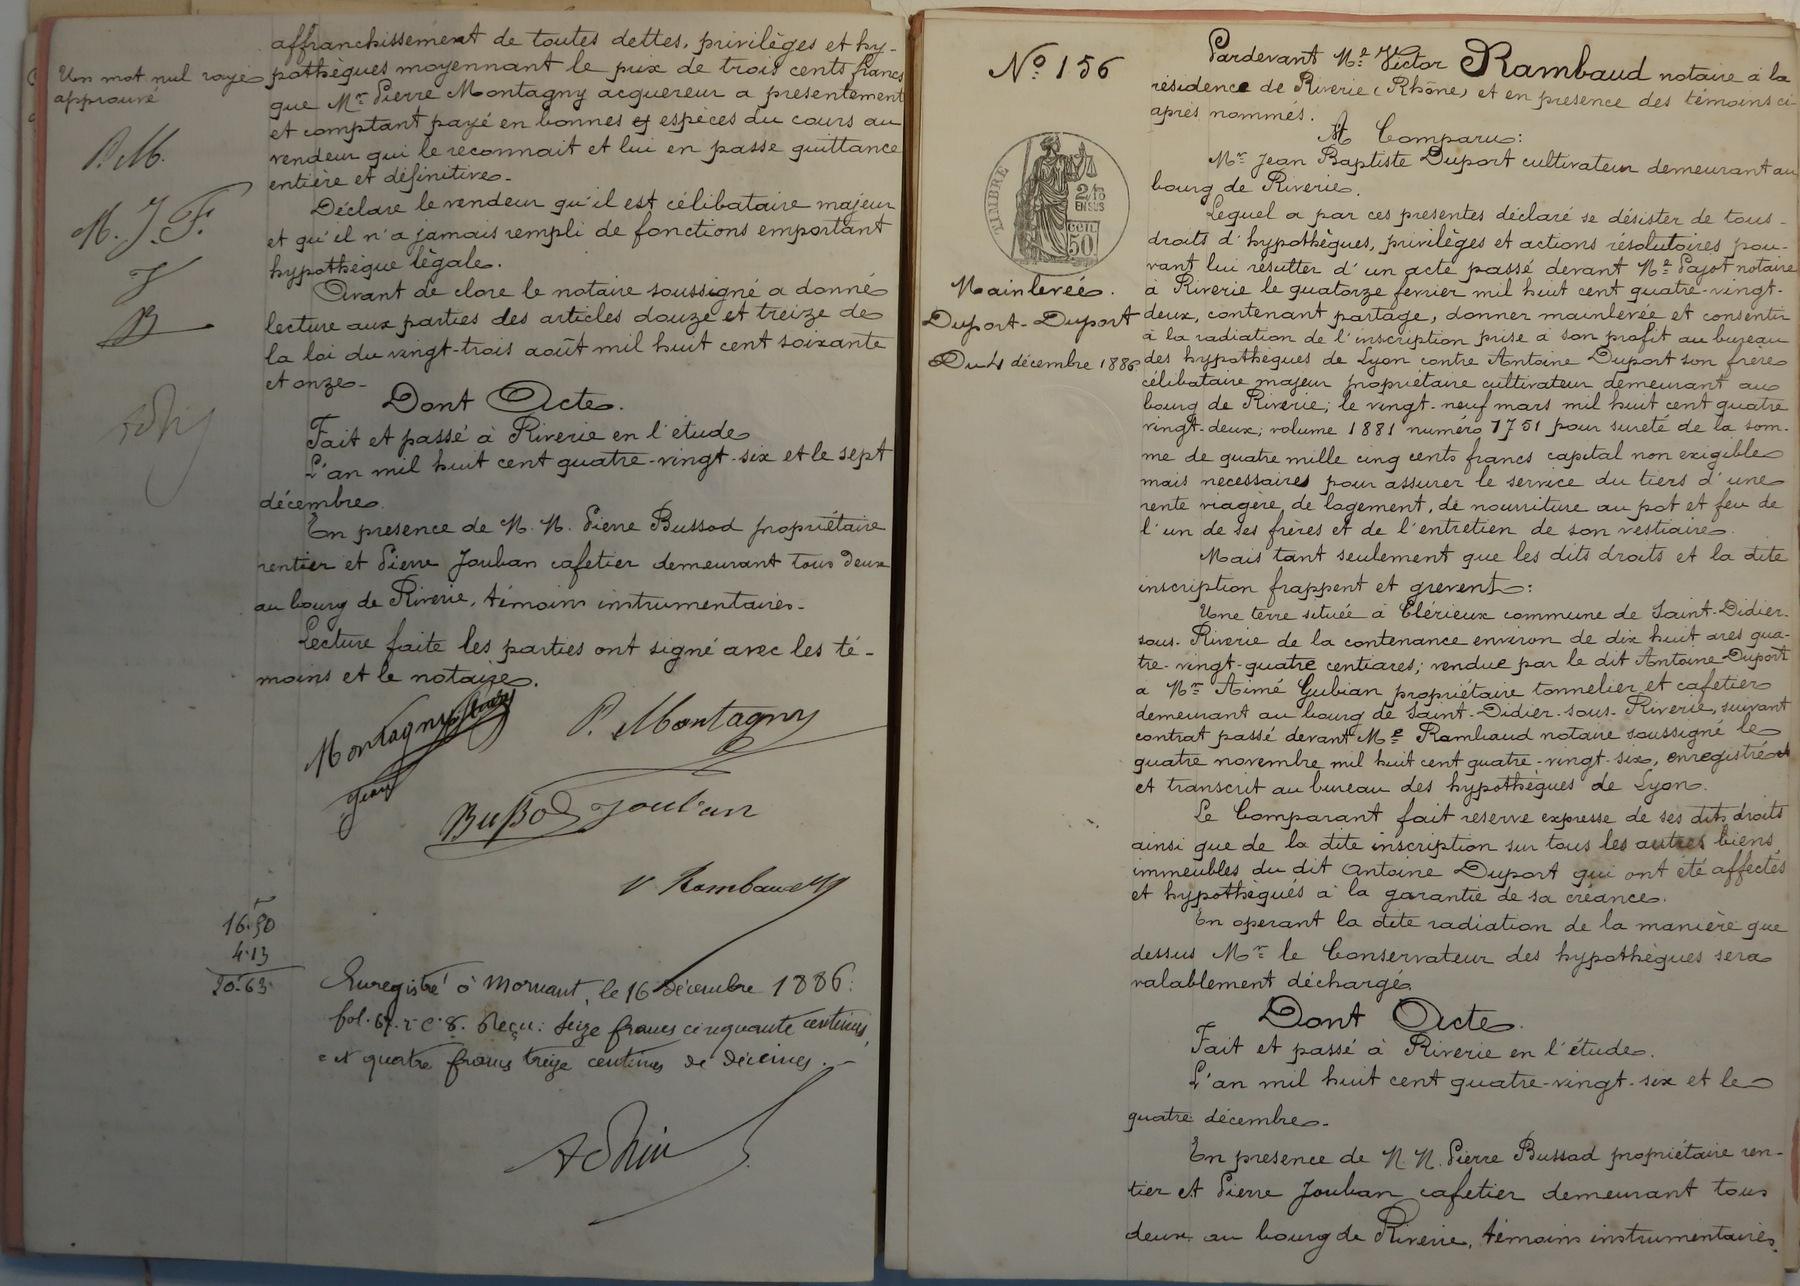 affranchissement de toutes dettes, privilèges et hy-
pothèques moyennant le prix de trois cents francs
que Mr Pierre Montagny acquereur a presentement
et comptant payé en bonnes espèces du cours au
vendeur qui le reconnait et lui en passe quittance
entière et définitive.
Déclare le vendeur qu'il est célibataire majeur
et qu'il n'a jamais rempli de fonctions emportant
hypothèque légale.
Avant de clore le notaire soussigné a donné
lecture aux parties des articles douze et treize de
la loi du vingt-trois août mil huit cent soixante
et onze.
Dont Acte.
Fait et passé à Riverie en l'étude
L'an mil huit cent quatre-vingt-six et le sept
décembre.
En presence de M. M. Pierre Bussod propriétaire
rentier et Pierre Jouban cafetier demeurant tous deux
au bourg de Riverie, témoins instrumentaires.
Lecture faite les parties ont signé avec les té-
moins et le notaire.
Un mot nul rayé
approuvé
P. M.
M. J. F.
J
B
Montagny
P. Montagny
Jean
Bussod Jouban
V. Rambaud
16.50
4.13
20.63
Enregistré à Mornant, le 16 décembre 1886.
fol. 67. r. c. 8. Reçu: Seize francs cinquante centimes,
et quatre francs treize centimes de décimes.
No 156
TIMBRE
2/10
EN SUS
50 cen
Mainlevée.
Duport-Duport
Du 4 décembre 1886.
Pardevant Me Victor Rambaud notaire à la
résidence de Riverie (Rhône) et en presence des témoins ci-
après nommés.
A Comparu:
Mr Jean Baptiste Duport cultivateur demeurant au
bourg de Riverie.
Lequel a par ces presentes déclaré se désister de tous
droits d'hypothèques, privilèges et actions résolutoires pou-
vant lui résulter d'un acte passé devant Me Pajot notaire
à Riverie le quatorze fevrier mil huit cent quatre-vingt-
deux, contenant partage, donner mainlevée et consentir
à la radiation de l'inscription prise à son profit au bureau
des hypothèques de Lyon contre Antoine Duport son frère
célibataire majeur propriétaire cultivateur demeurant au
bourg de Riverie; le vingt-neuf mars mil huit cent quatre
vingt-deux; volume 1881 numéro 1751 pour sureté de la som-
me de quatre mille cinq cents francs capital non exigible
mais necessaires pour assurer le service du tiers d'une
rente viagère, de logement, de nourriture au pot et feu de
l'un de ses frères et de l'entretien de son vestiaire.
Mais tant seulement que les dits droits et la dite
inscription frappent et grevent:
Une terre située à Clérieux commune de Saint-Didier-
sous-Riverie de la contenance environ de dix huit ares qua-
tre-vingt-quatre centiares; vendue par le dit Antoine Duport
a Mr Aimé Gubian propriétaire tonnelier et cafetier
demeurant au bourg de Saint-Didier-sous-Riverie, suivant
contrat passé devant Me Rambaud notaire soussigné le
quatre novembre mil huit cent quatre-vingt-six, enregistré
et transcrit au bureau des hypothèques de Lyon.
Le Comparant fait reserve expresse de ses dits droits
ainsi que de la dite inscription sur tous les autres biens
immeubles du dit Antoine Duport qui ont été affectés
et hypothèqués à la garantie de sa créance.
En operant la dite radiation de la manière que
dessus Mr le Conservateur des hypothèques sera
valablement déchargé.
Dont Acte.
Fait et passé à Riverie en l'étude.
L'an mil huit cent quatre-vingt-six et le
quatre décembre.
En presence de M. M. Pierre Bussod propriétaire ren-
tier et Pierre Jouban cafetier demeurant tous
deux au bourg de Riverie, témoins instrumentaires.